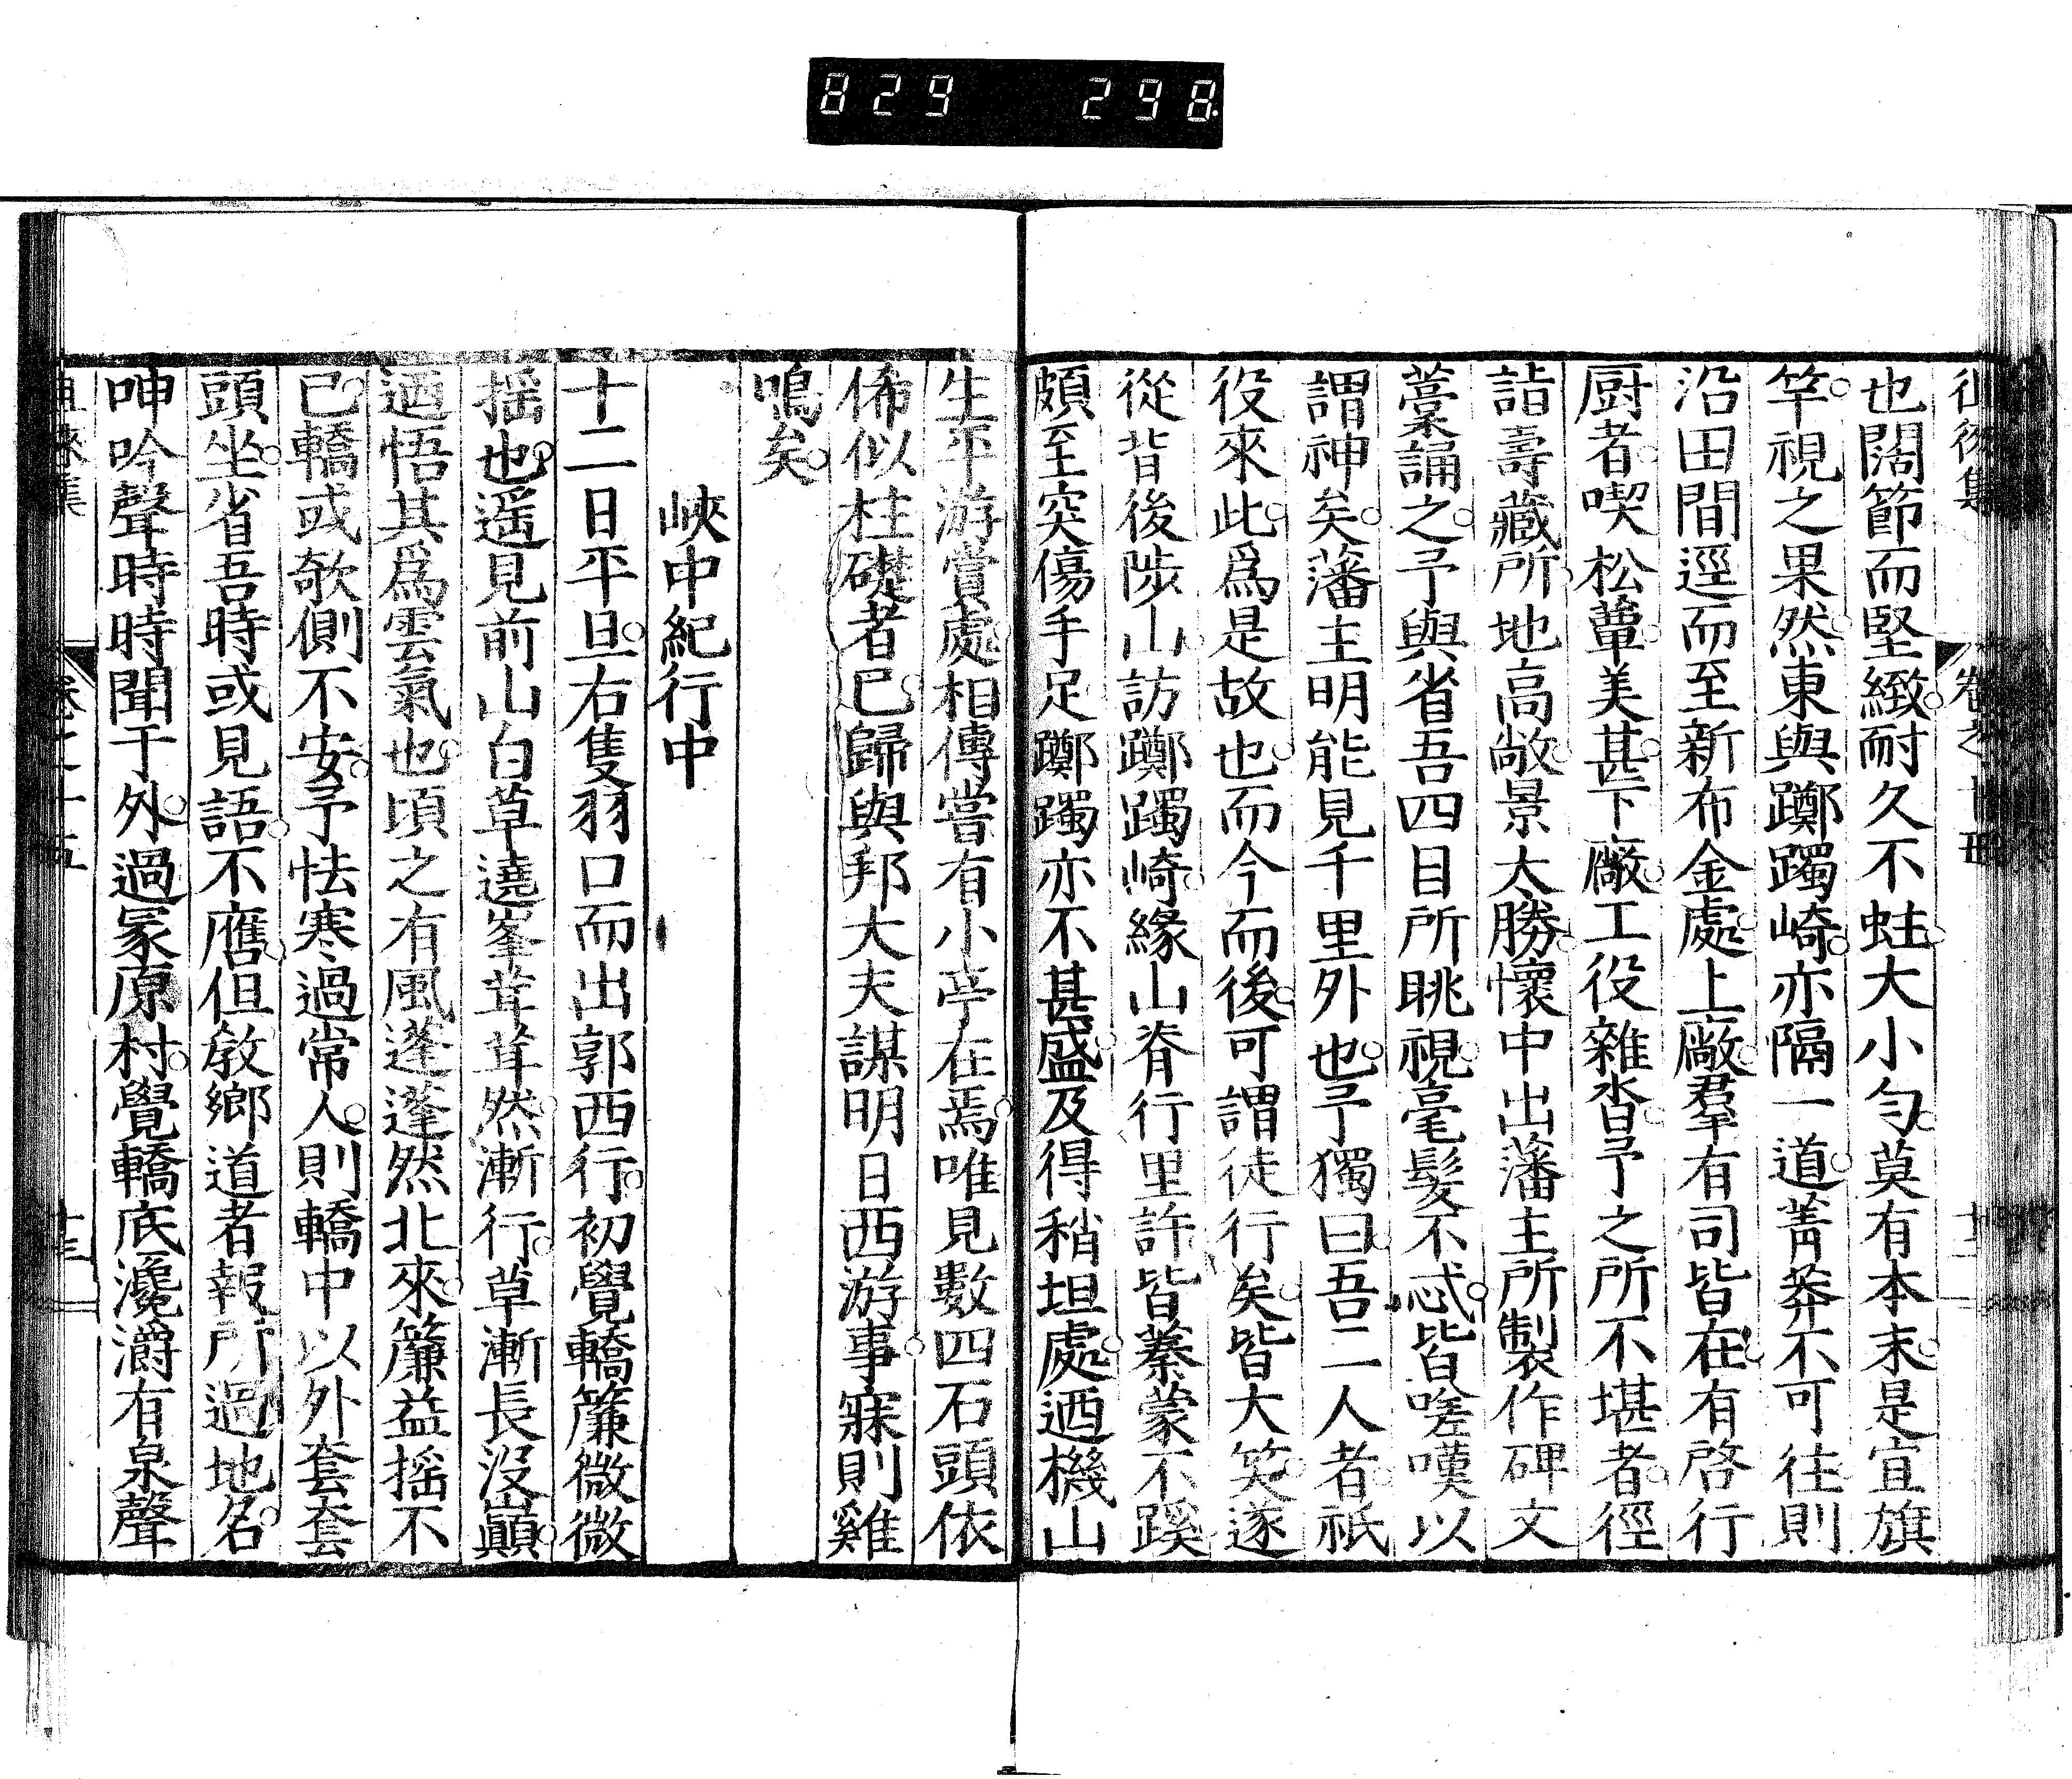 829 298
也闊節而堅緻耐久不蛀大小勻莫有本末是宜旗
竿視之果然東與躑躅崎亦隔一道菁莽不可往則
沿田間逕而至新布金處上廠羣有司皆在有啓行
厨者喫松蕈美甚下廠工役雜沓予之所不堪者徑
詣壽藏所地高敞景大勝懷中出藩主所製作碑文
藁誦之予與省吾四目所眺視毫髮不忒皆嗟嘆以
謂神矣藩主明能見千里外也予獨曰吾二人者祇
役來此爲是故也而今而後可謂徒行矣皆大笑遂
從背後陟山訪躑躅崎緣山脊行里許皆蓁蒙不蹊
頗至突傷手足躑躅亦不甚盛及得稍坦處迺機山
生平游賞處相傳嘗有小亭在焉唯見數四石頭依
俙似柱礎者已歸與邦大夫謀明日西游事寐則雞
鳴矣
峽中紀行中
十二日平旦右隻羽口而出郭西行初覺轎簾微微
搖也遥見前山白草遶峯茸茸然漸行草漸長沒巔
迺悟其爲雲氣也頃之有風蓬蓬然北來簾益搖不
已轎或欹側不安予怯寒過常人則轎中以外套套
頭坐省吾時或見語不應但敎鄉道者報所過地名
呻吟聲時時聞于外過冢原村覺轎底瀺灂有泉聲